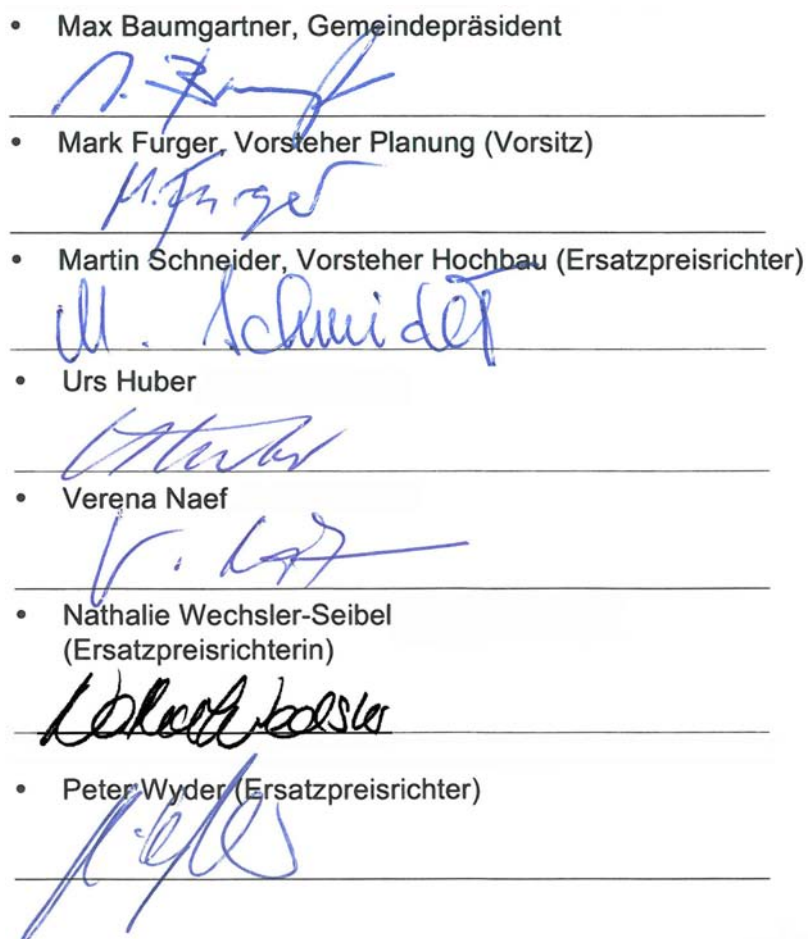 • Max Baumgartner, Gemeindepräsident
• Mark Furger, Vorsteher Planung (Vorsitz)
M. Furger
• Martin Schneider, Vorsteher Hochbau (Ersatzpreisrichter)
M. Schneider
• Urs Huber
• Verena Naef
V.
• Nathalie Wechsler-Seibel
(Ersatzpreisrichterin)
• Peter Wyder (Ersatzpreisrichter)